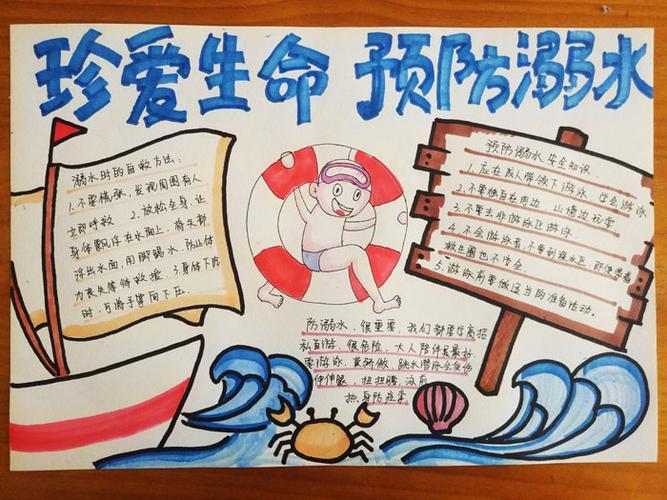 珍爱生命 预防溺水
溺水时的自救方法:
1.不要慌张,发现周围有人
立即呼救 2.放松全身,让
身体飘浮在水面上,将头部
浮出水面,用脚踢水,防止体
力丧失等待救援 3.身体下沉
时,可将手掌向下压.
预防溺水安全知识
1.应在成人带领下游泳 学会游泳
2.不要独自在河边 山塘边玩耍
3.不要去非游泳区游泳
4.不会游泳者,不要到深水区,即使带着
救生圈也不安全.
5.游泳前要做适当的准备活动.
防溺水,很重要,我们都要学高招
私自游、很危险,大人陪伴是最好
要游泳,莫骄傲 跳水潜泳会
伸伸腿、扭扭腰,泳前
热身防痉挛